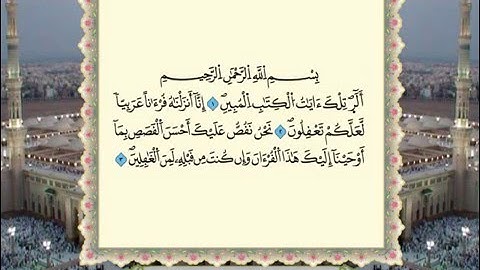 بِسْمِ اِللَّهِ اِلرَّحْمَٰنِ اِلرَّحِيمِ
أَلَٓر۪ تِلْكَ ءَايَٰتُ اُلْكِتَٰبِ اِلْمُبِينِۖ ١ إِنَّآ أَنزَلْنَٰهُ قُرْءَٰناً عَرَبِيّاٗ
لَّعَلَّكُمْ تَعْقِلُونَۖ ٢ نَحْنُ نَقُصُّ عَلَيْكَ أَحْسَنَ اَلْقَصَصِ بِمَآ
أَوْحَيْنَآ إِلَيْكَ هَٰذَا اَلْقُرْءَانَ وَإِن كُنتَ مِن قَبْلِهِۦ لَمِنَ اَلْغَٰفِلِينَۖ ٣